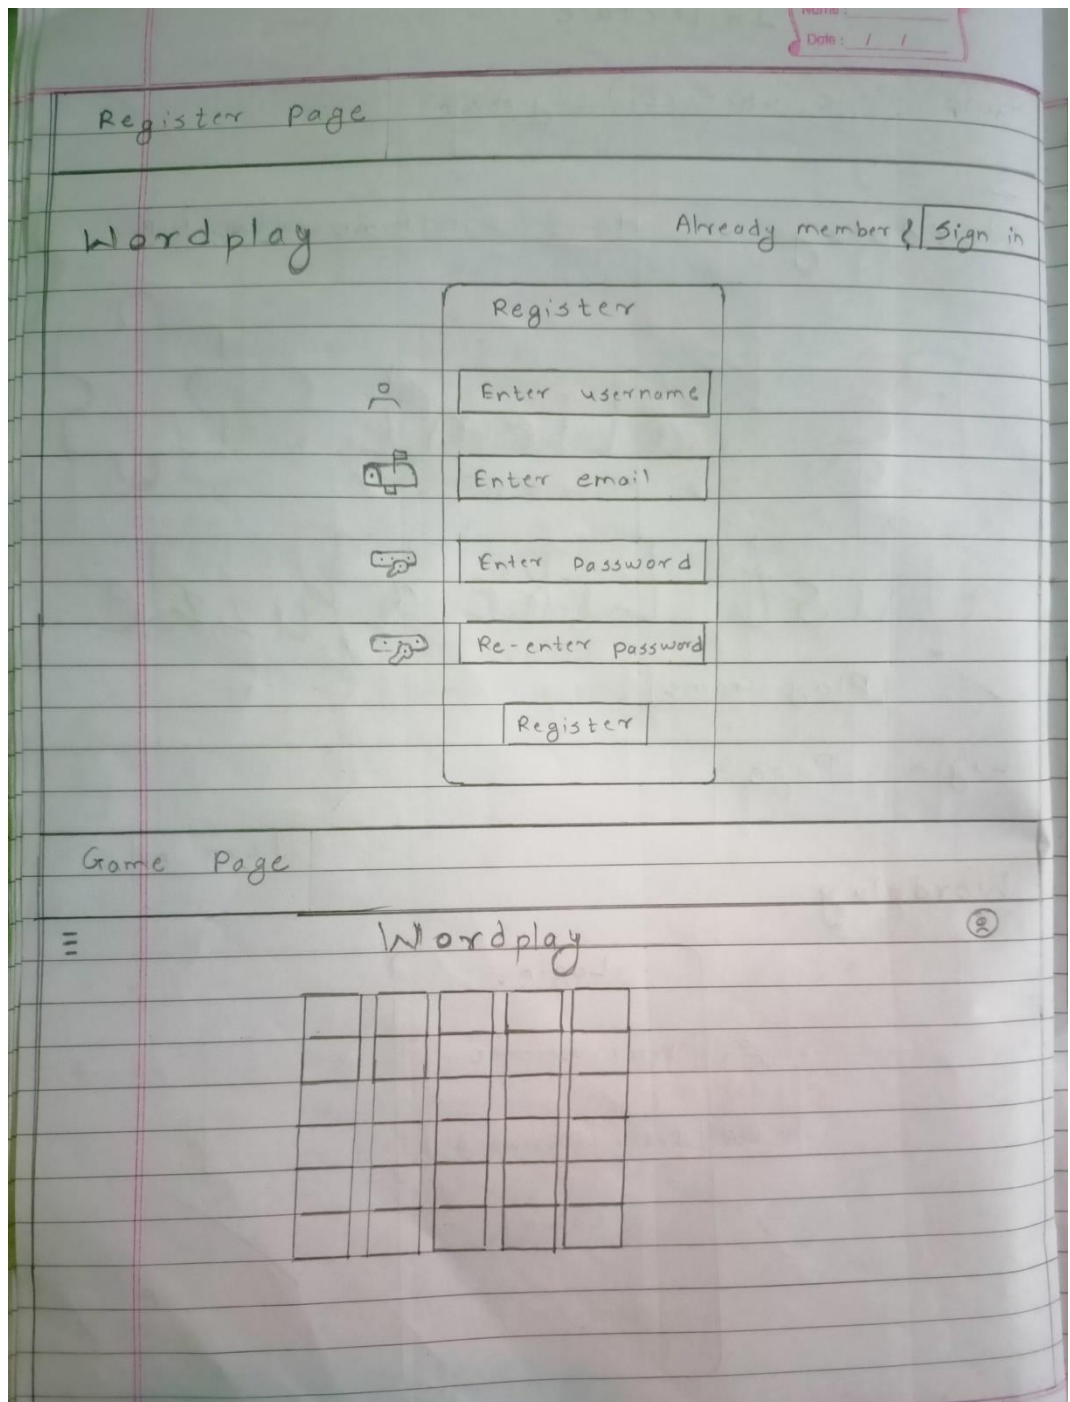 Name :
Date : / /
Register Page
Wordplay
Already member? Sign in
Register
Enter username
Enter email
Enter Password
Re-enter password
Register
Game Page
Wordplay